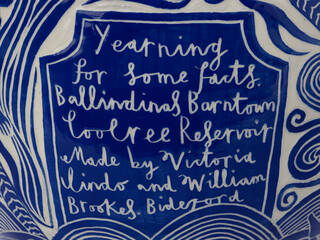 Yearning
for some facts.
Ballindinas Barntown
Coolree Reservoir
Made by Victoria
lindo and William
Brookes. Bideford